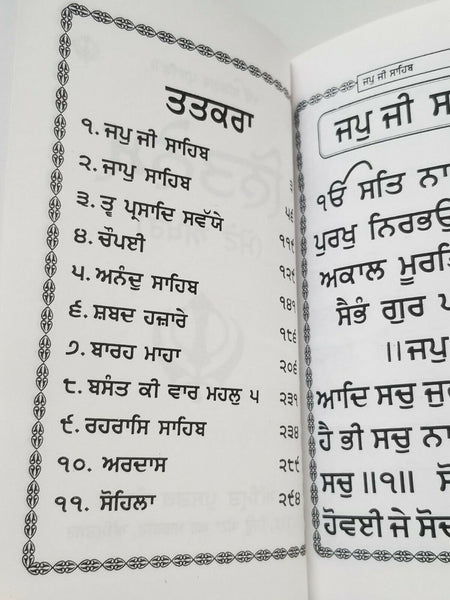 ਤਤਕਰਾ
੧. ਜਪੁ ਜੀ ਸਾਹਿਬ
੨. ਜਾਪੁ ਸਾਹਿਬ ੫੬
੩. ਤ੍ਵ ਪ੍ਰਸਾਦਿ ਸਵੱਯੇ ੧੧੯
੪. ਚੌਪਈ ੧੨੯
੫. ਅਨੰਦੁ ਸਾਹਿਬ ੧੪੧
੬. ਸ਼ਬਦ ਹਜ਼ਾਰੇ ੧੮੬
੭. ਬਾਰਹ ਮਾਹਾ ੨੦੬
੮. ਬਸੰਤ ਕੀ ਵਾਰ ਮਹਲੁ ੫ ੨੩੧
੯. ਰਹਰਾਸਿ ਸਾਹਿਬ ੨੩੪
੧੦. ਅਰਦਾਸ ੨੮੯
੧੧. ਸੋਹਿਲਾ ੨੯੪
ਜਪੁ ਜੀ ਸਾਹਿਬ
ਜਪੁ ਜੀ
ੴ ਸਤਿ
ਪੁਰਖੁ ਨਿਰਭਉ
ਅਕਾਲ ਮੂਰਤਿ
ਸੈਭੰ ਗੁਰ
॥ਜਪੁ
ਆਦਿ ਸਚੁ
ਹੈ ਭੀ ਸਚੁ
ਸਚੁ ॥੧॥
ਹੋਵਈ ਜੇ